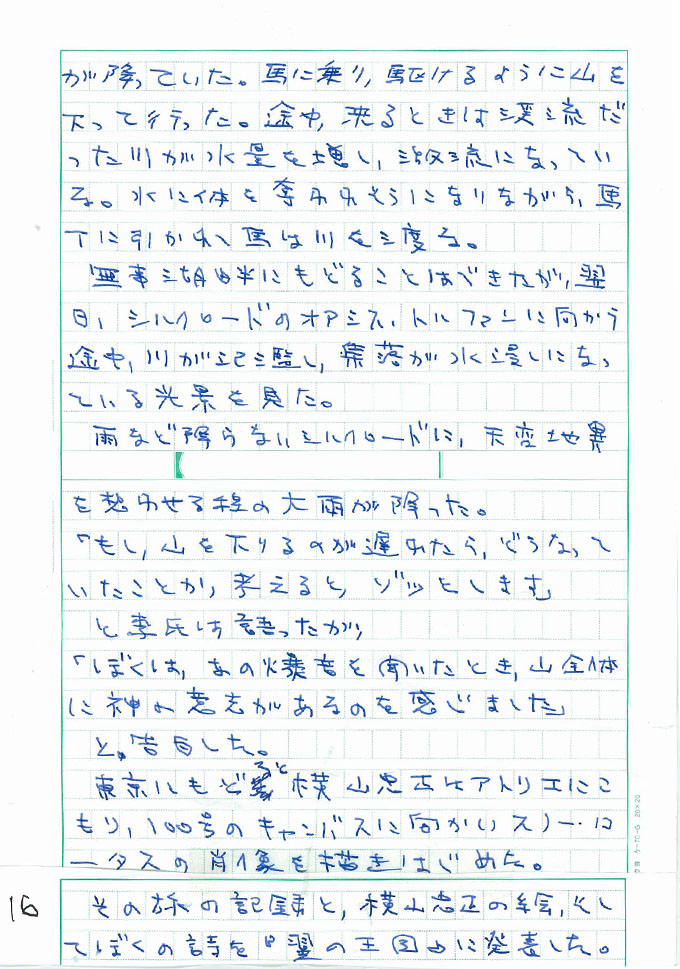 が降っていた。馬に乗り，駆けるように山を
下って行った。途中，来るときは渓流だ
った川が水量を増し，激流になってい
る。水に体を奪われそうになりながら，馬
丁に引かれ，馬は川を渡る。
無事湖畔にもどることはできたが，翌
日，シルクロードのオアシス，トルファンに向かう
途中，川が氾濫し，集落が水浸しになっ
ている光景を見た。
雨など降らないシルクロードに，天変地異
を想わせる程の大雨が降った。
「もし，山を下りるのが遅れたら，どうなって
いたことか，考えると，ゾッとします」
と李氏は語ったが，
「ぼくは，あの爆音を聞いたとき，山全体
に神の意志があるのを感じました」
と，告白した。
東京にもどると横山忠正はアトリエにこ
もり，100号のキャンバスに向かいスリー・ロ
ータスの肖像を描きはじめた。
16
その旅の記録と，横山忠正の絵，そし
てぼくの詩を『翼の王国』に発表した。
20×20